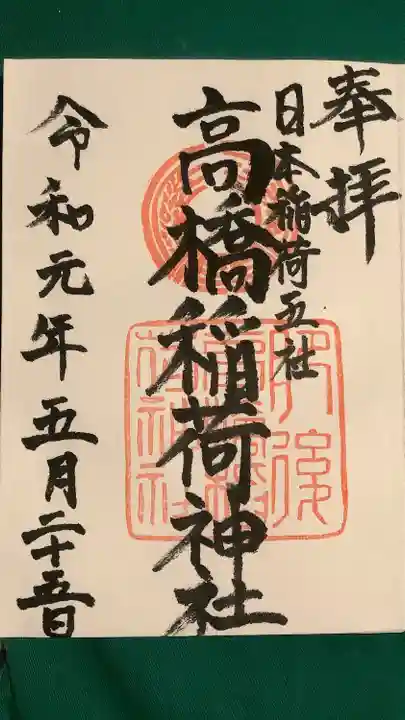 奉拝
日本稲荷五社
高橋稲荷神社
令和元年五月二十五日
肥後
高橋稲
荷神社